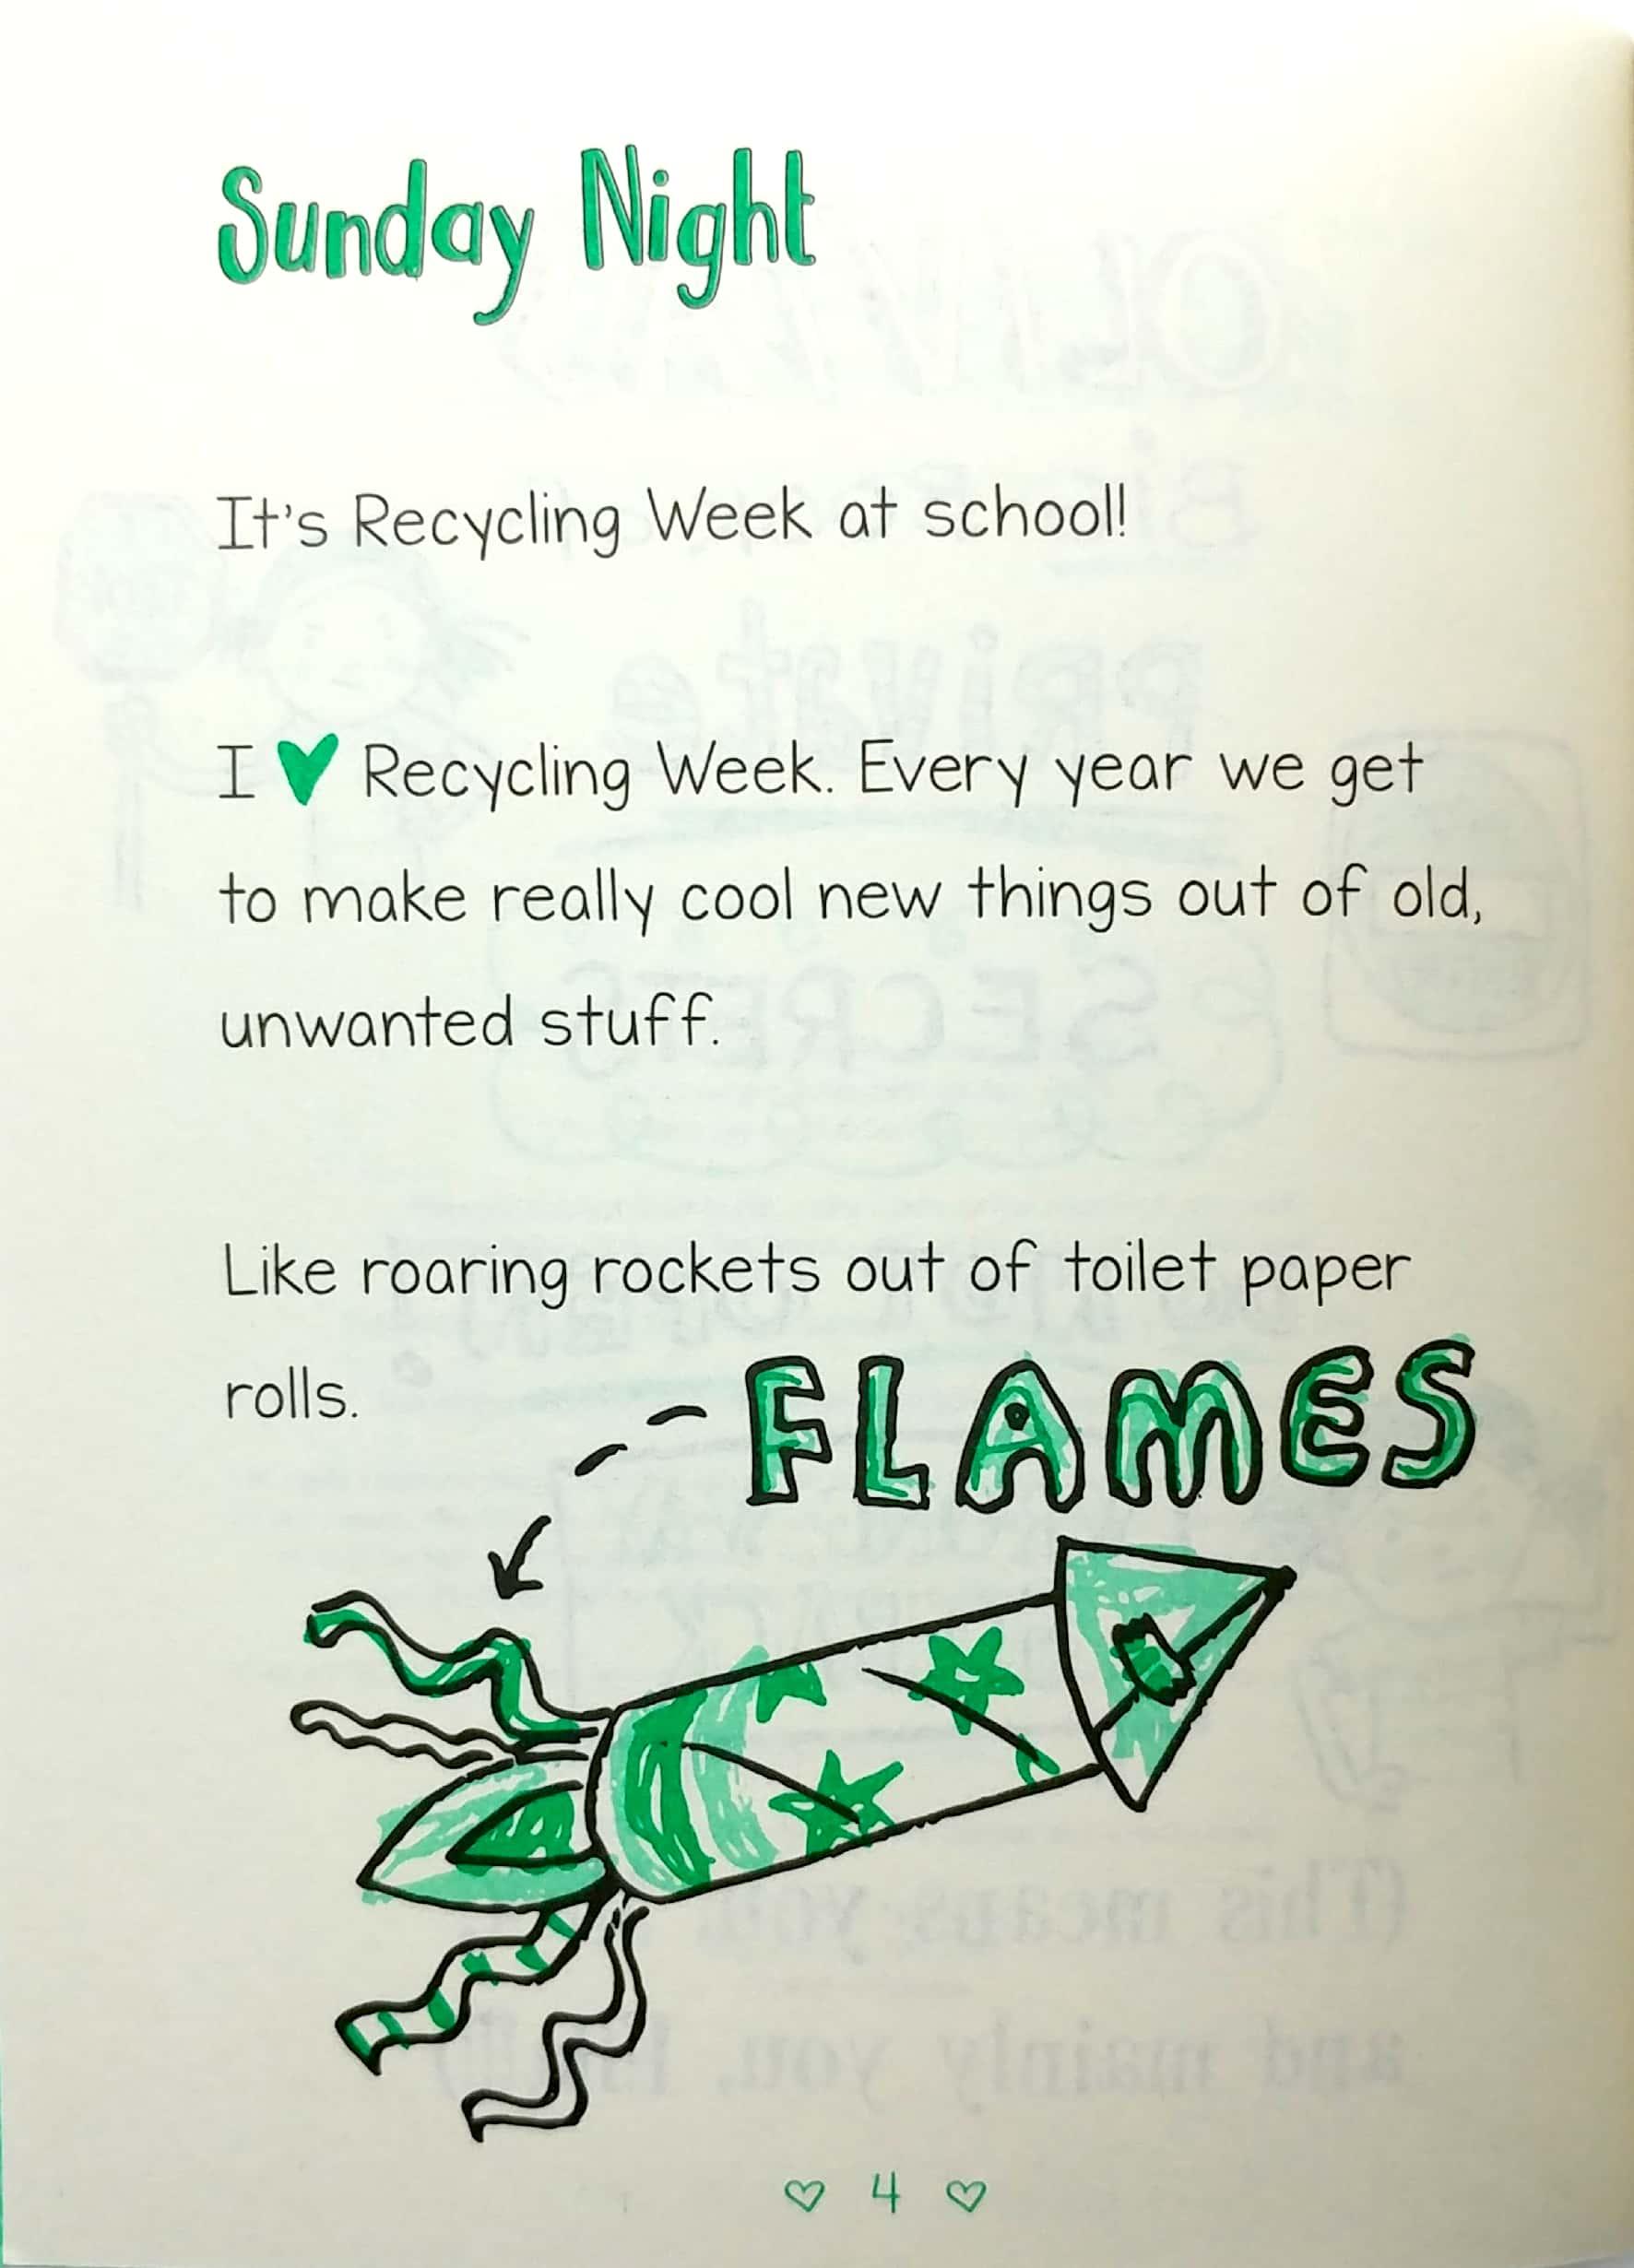 Sunday Night
It's Recycling Week at school!
I ♥ Recycling Week. Every year we get
to make really cool new things out of old,
unwanted stuff.
Like roaring rockets out of toilet paper
rolls.
FLAMES
♡ 4 ♡